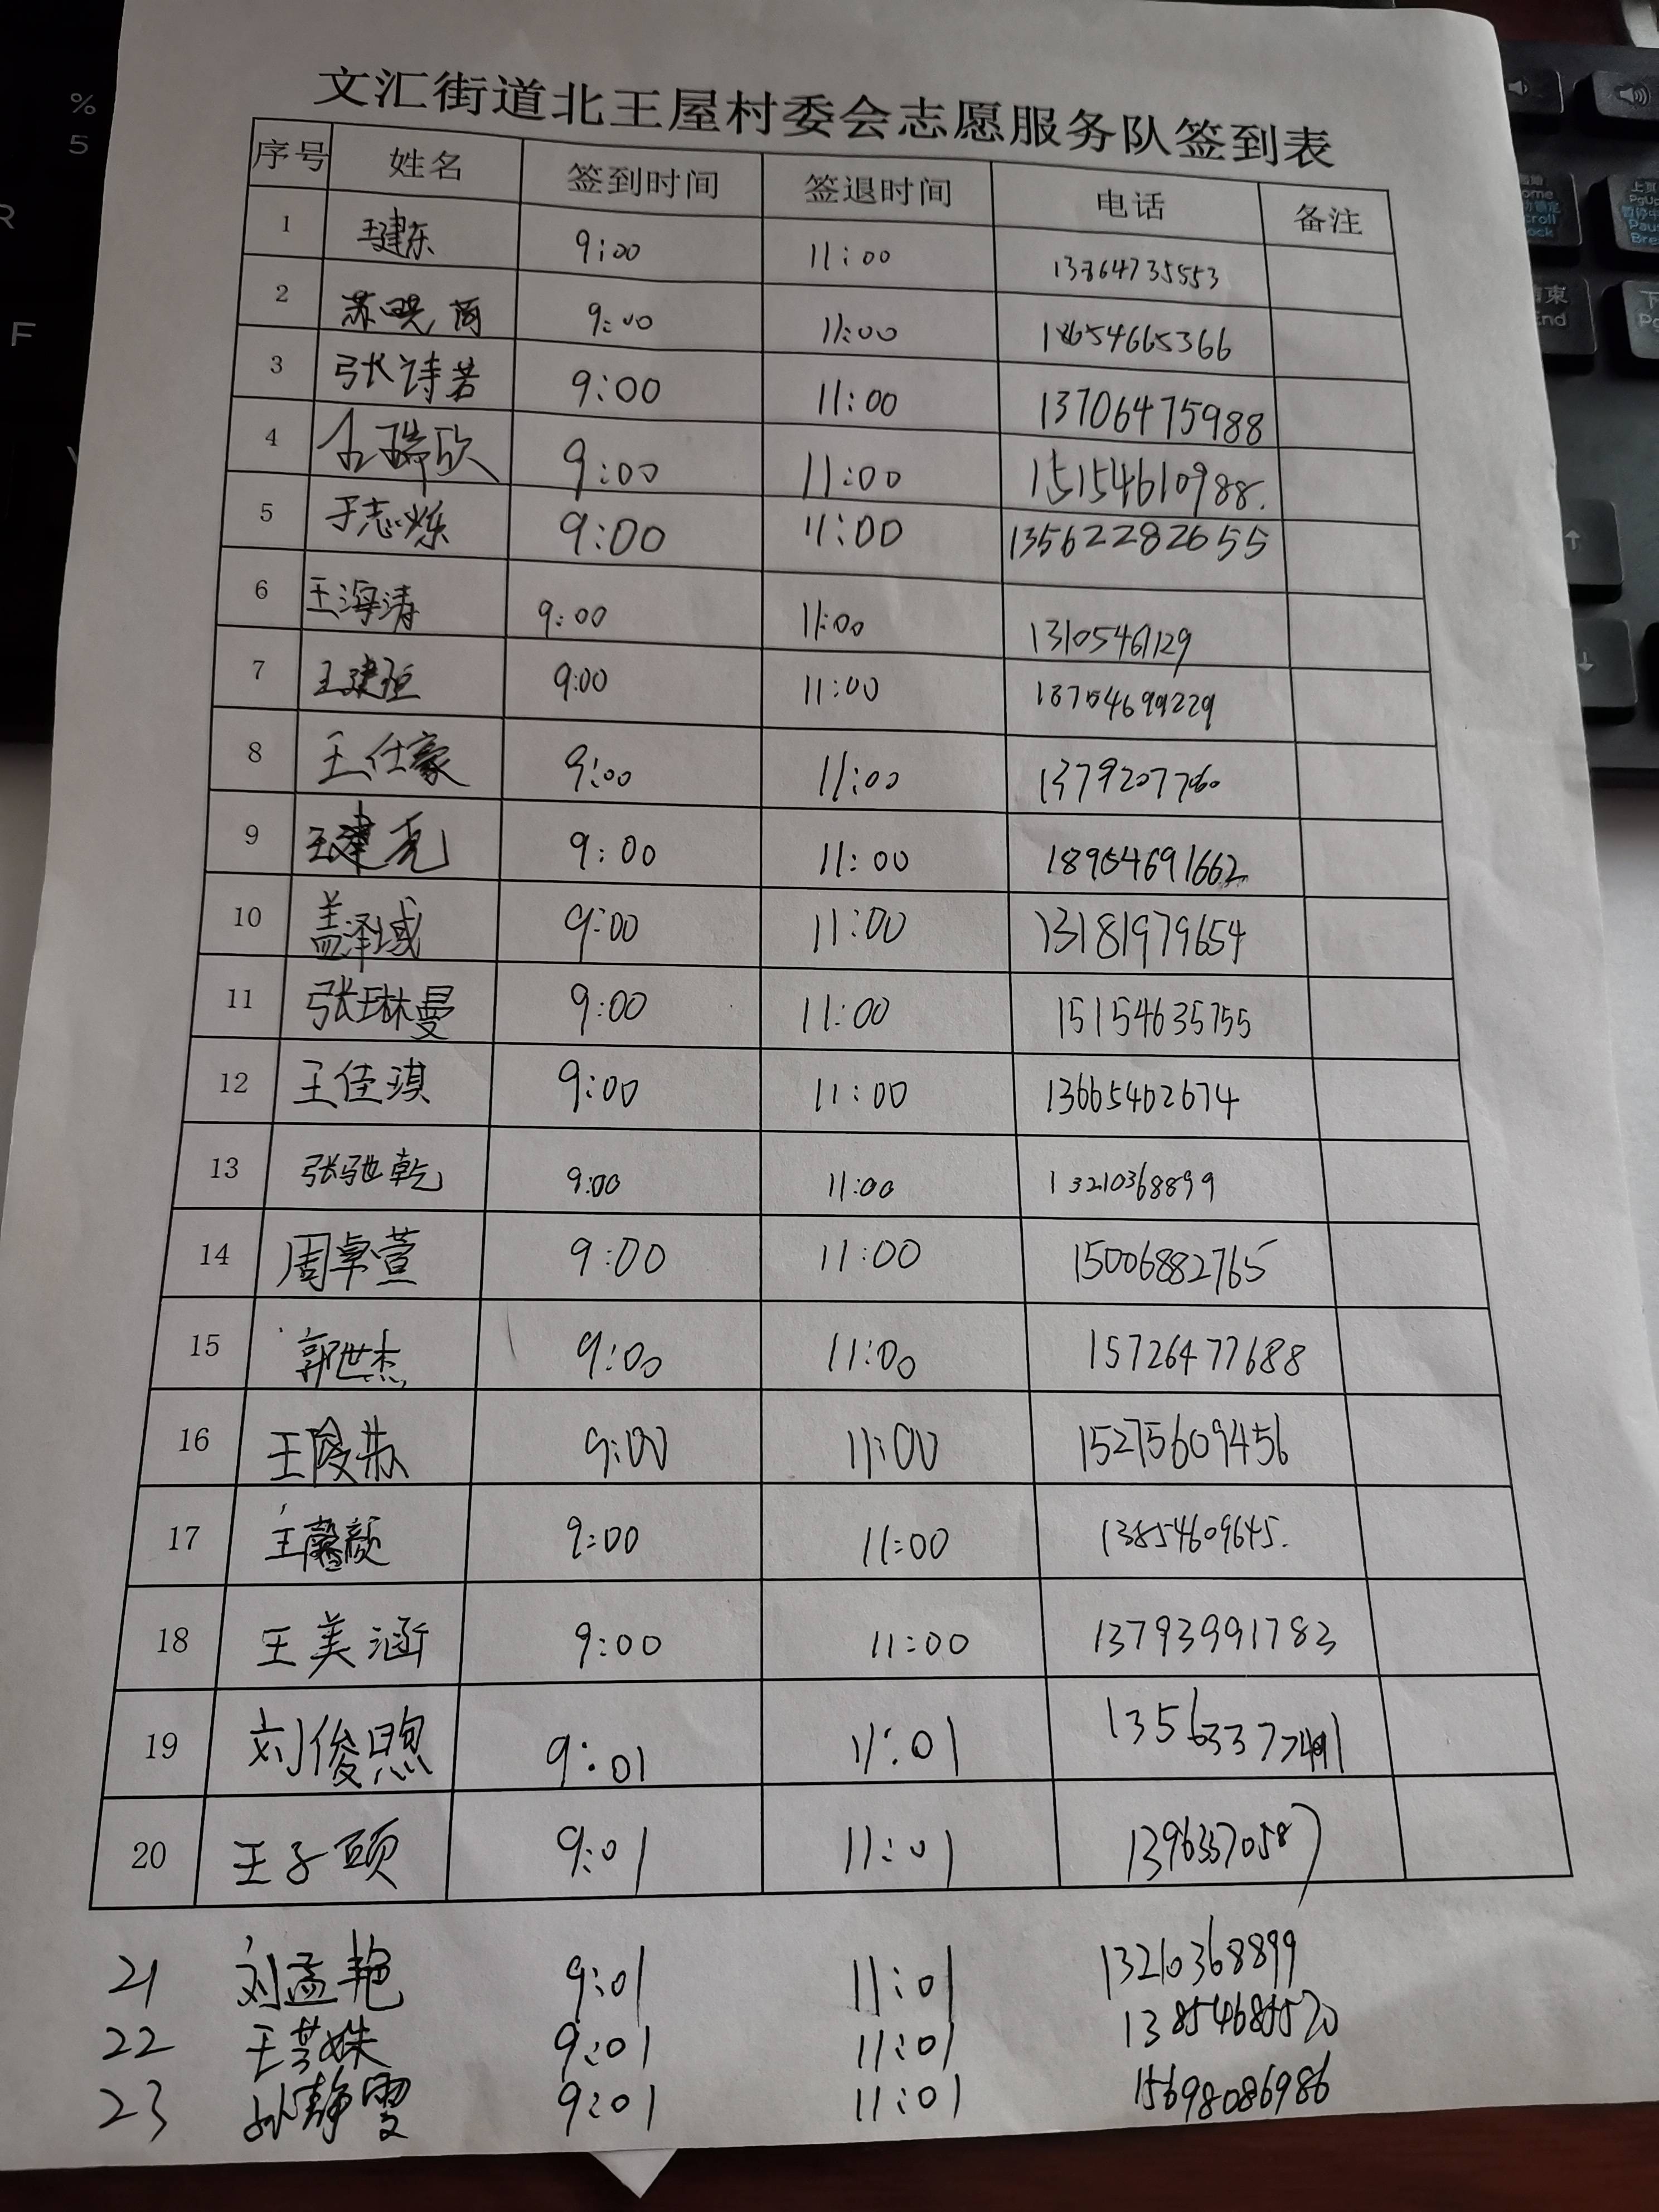 文汇街道北王屋村委会志愿服务队签到表
序号 姓名 签到时间 签退时间 电话 备注
1 王建东 9:00 11:00 13864735553
2 苏晓 9:00 11:00 18654665366
3 张诗若 9:00 11:00 13706475988
4 瑞欣 9:00 11:00 15154610988.
5 于志烁 9:00 11:00 13562282655
6 王海涛 9:00 11:00 13105461129
7 王建 9:00 11:00 18704699229
8 王仕豪 9:00 11:00
9 王建亮 9:00 11:00 18904691662
10 盖泽域 9:00 11:00 13181979654
11 张琳曼 9:00 11:00 15154635755
12 王佳淇 9:00 11:00 13665462674
13 张驰乾 9:00 11:00 13210368899
14 周卓萱 9:00 11:00 15006882765
15 郭世杰 9:00 11:00 15726477688
16 王 9:00 11:00 15275609456
17 王馨颜 9:00 11:00 13854609645.
18 王美涵 9:00 11:00 13793991783
19 刘俊煦 9:01 11:01
20 王子硕 9:01 11:01 13963370587
21 刘孟艳 9:01 11:01 13210368899
22 王 姝 9:01 11:01
23 孙静雯 9:01 11:01 15698086986